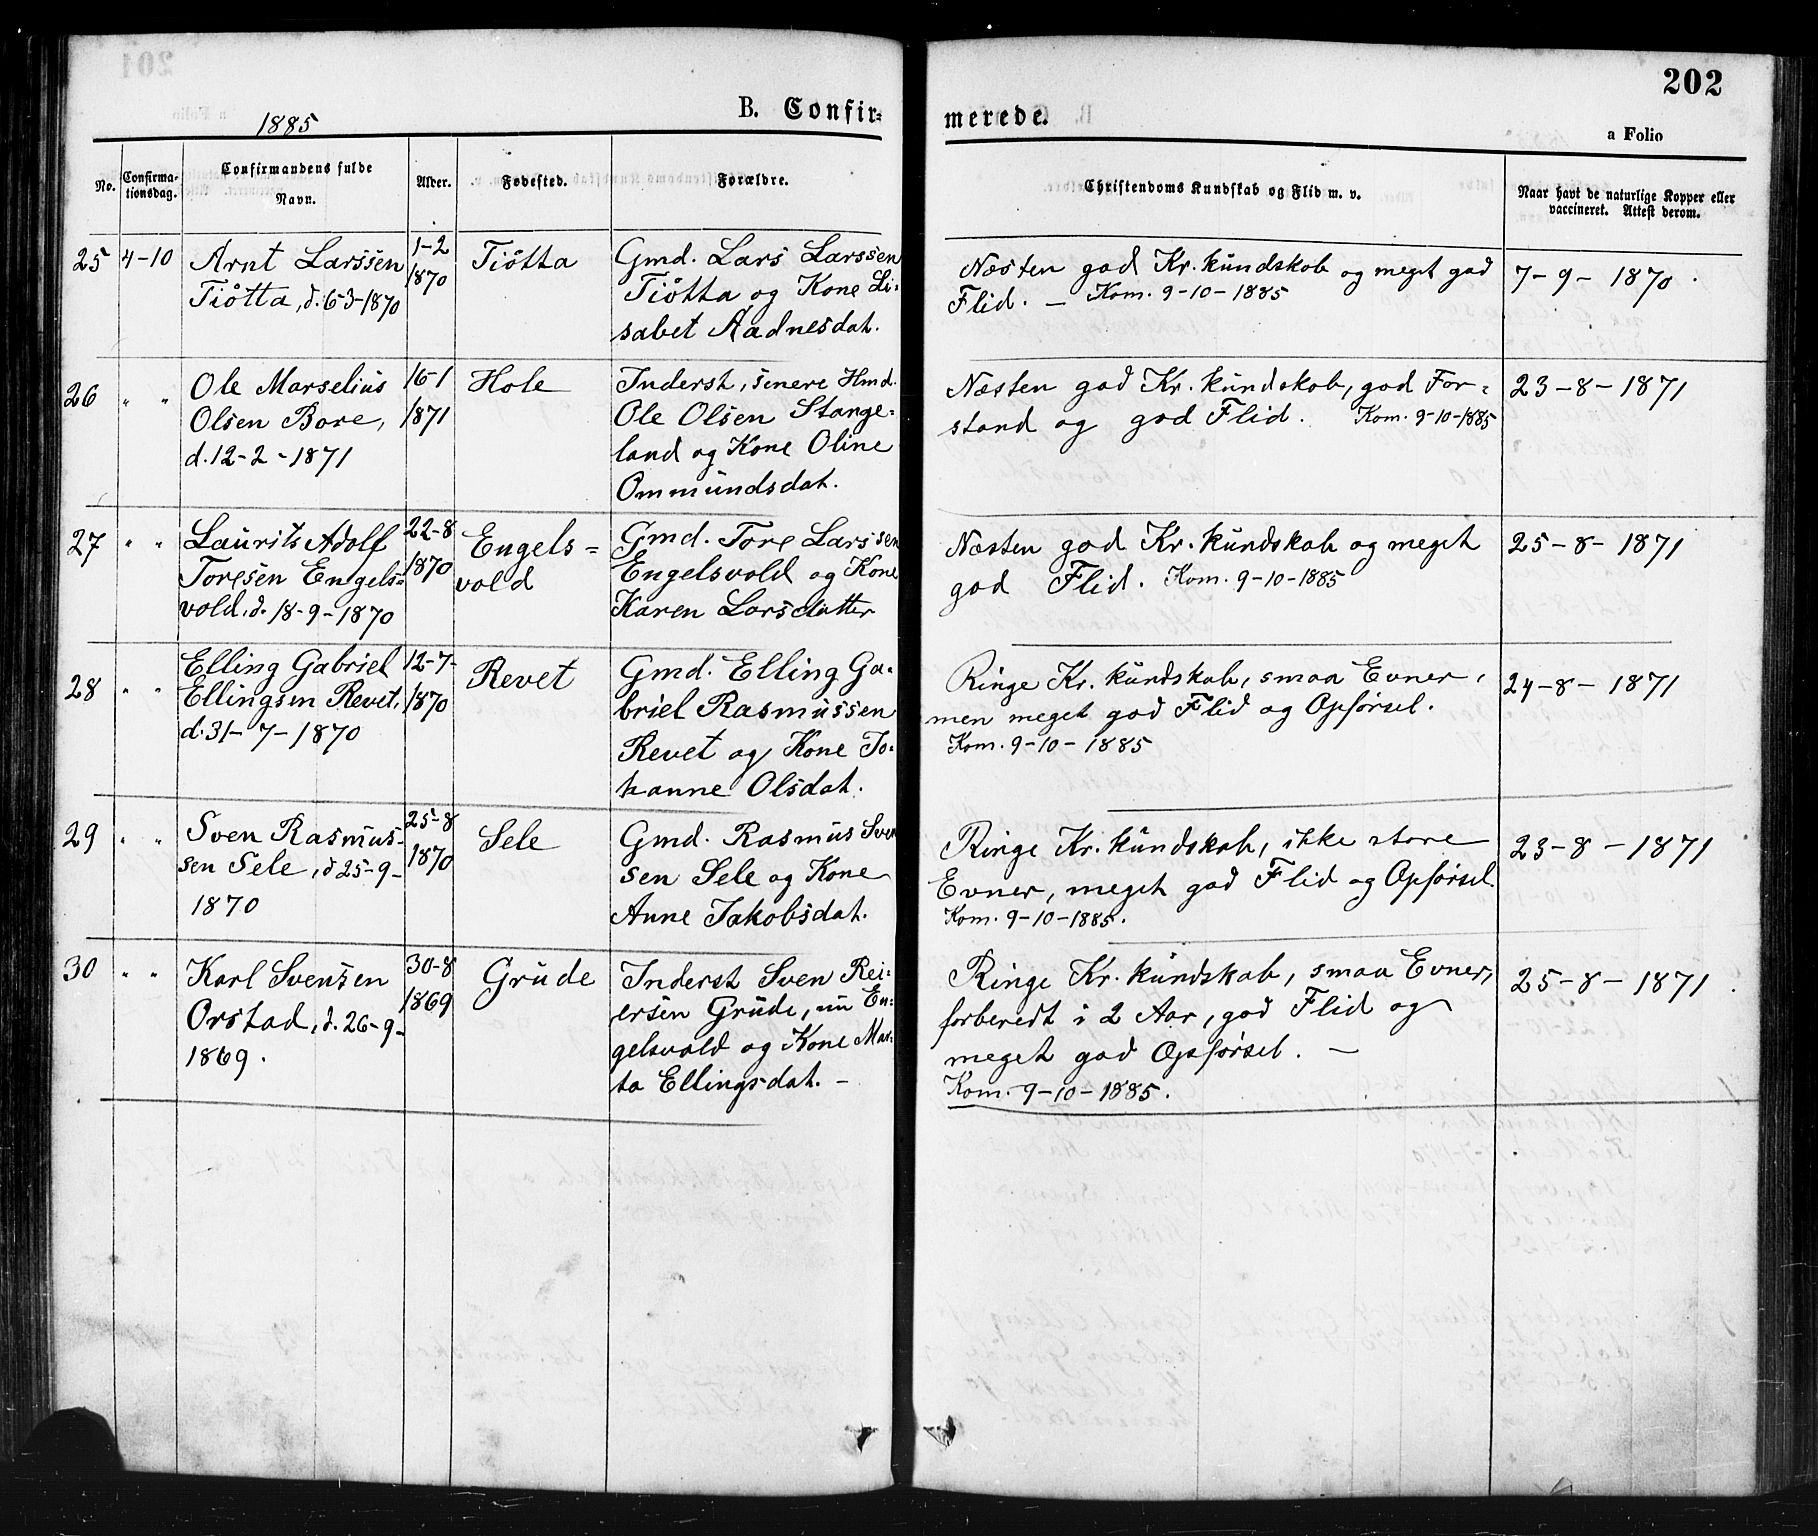 202
1885
B. Confir-
merede.
a Folio
No.
Confirma-
tionsdag.
Confirmandens fulde
Navn.
Alder.
Fødested.
Forældre.
Christendoms Kundskab og Flid m. v.
Naar havt de naturlige Kopper eller
vaccineret. Attest derom.
25
4-10
Arnt Larssen
Tiøtta, d. 6-3-1870
1-2
1870
Tiøtta
Gmd. Lars Larssen
Tiøtta og Kone Li-
sabet Aadnesdat.
Næsten god Kr. kundskab og meget god
Flid. — Kom. 9-10-1885
7-9-1870
26
" "
Ole Marselius
Olsen Bore,
d. 12-2-1871
16-1
1871
Hole
Inderst, senere Hmd.
Ole Olsen Stange-
land og Kone Oline
Ommundsdat.
Næsten god Kr. kundskab, god For-
stand og god Flid. Kom. 9-10-1885
23-8-1871
27
" "
Laurits Adolf
Toresen Engels-
vold, d. 18-9-1870
22-8
1870
Engels-
vold
Gmd. Tore Larssen
Engelsvold og Kone
Karen Larsdatter
Næsten god Kr. kundskab og meget
god Flid. Kom. 9-10-1885
25-8-1871
28
" "
Elling Gabriel
Ellingsen Revet,
d. 31-7-1870
12-7-
1870
Revet
Gmd. Elling Ga-
briel Rasmussen
Revet og Kone Jo-
hanne Olsdat.
Ringe Kr. kundskab, smaa Evner,
men meget god Flid og Opførsel.
Kom. 9-10-1885
24-8-1871
29
" "
Sven Rasmus-
sen Sele, d 25-9-
1870
25-8
1870
Sele
Gmd. Rasmus Sven
sen Sele og Kone
Anne Jakobsdat.
Ringe Kr. kundskab, ikke store
Evner, meget god Flid og Opførsel.
Kom. 9-10-1885.
23-8-1871
30
" "
Karl Svensen
Orstad, d. 26-9-
1869.
30-8
1869
Grude
Inderst Sven Rei-
ersen Grude, nu En-
gelsvold og Kone Mar-
ta Ellingsdat. —
Ringe Kr. kundskab, smaa Evner,
forberedt i 2 Aar, god Flid og
meget god Opførsel. —
Kom. 9-10-1885.
25-8-1871